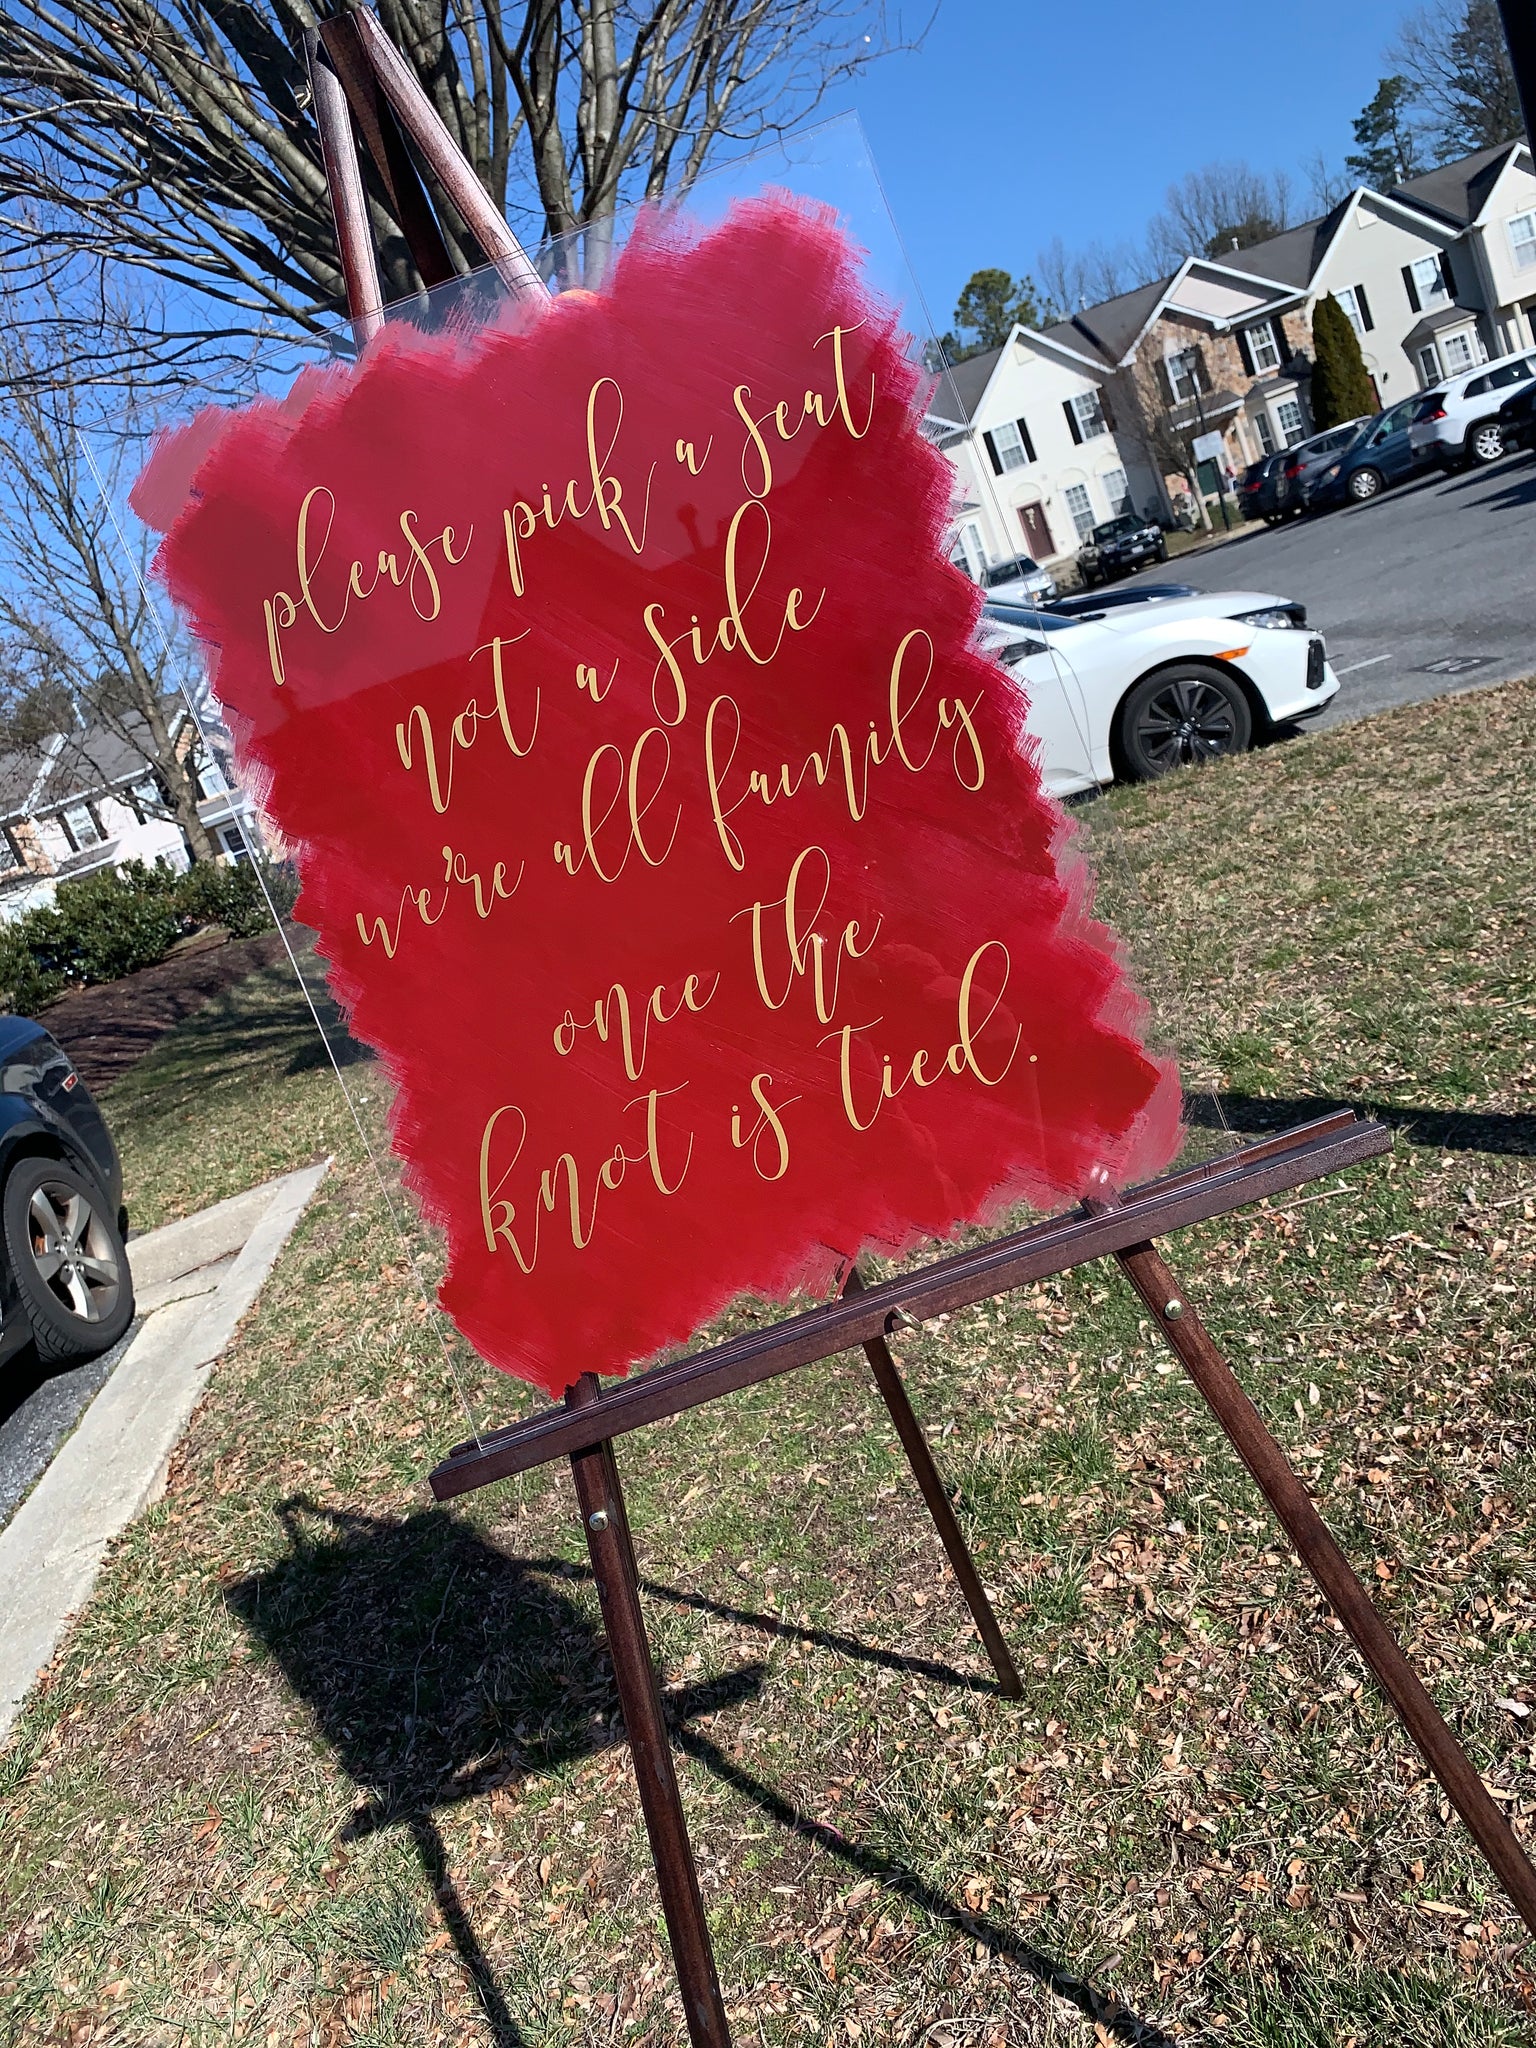 please pick a seat
not a side
we're all family
once the
knot is tied.